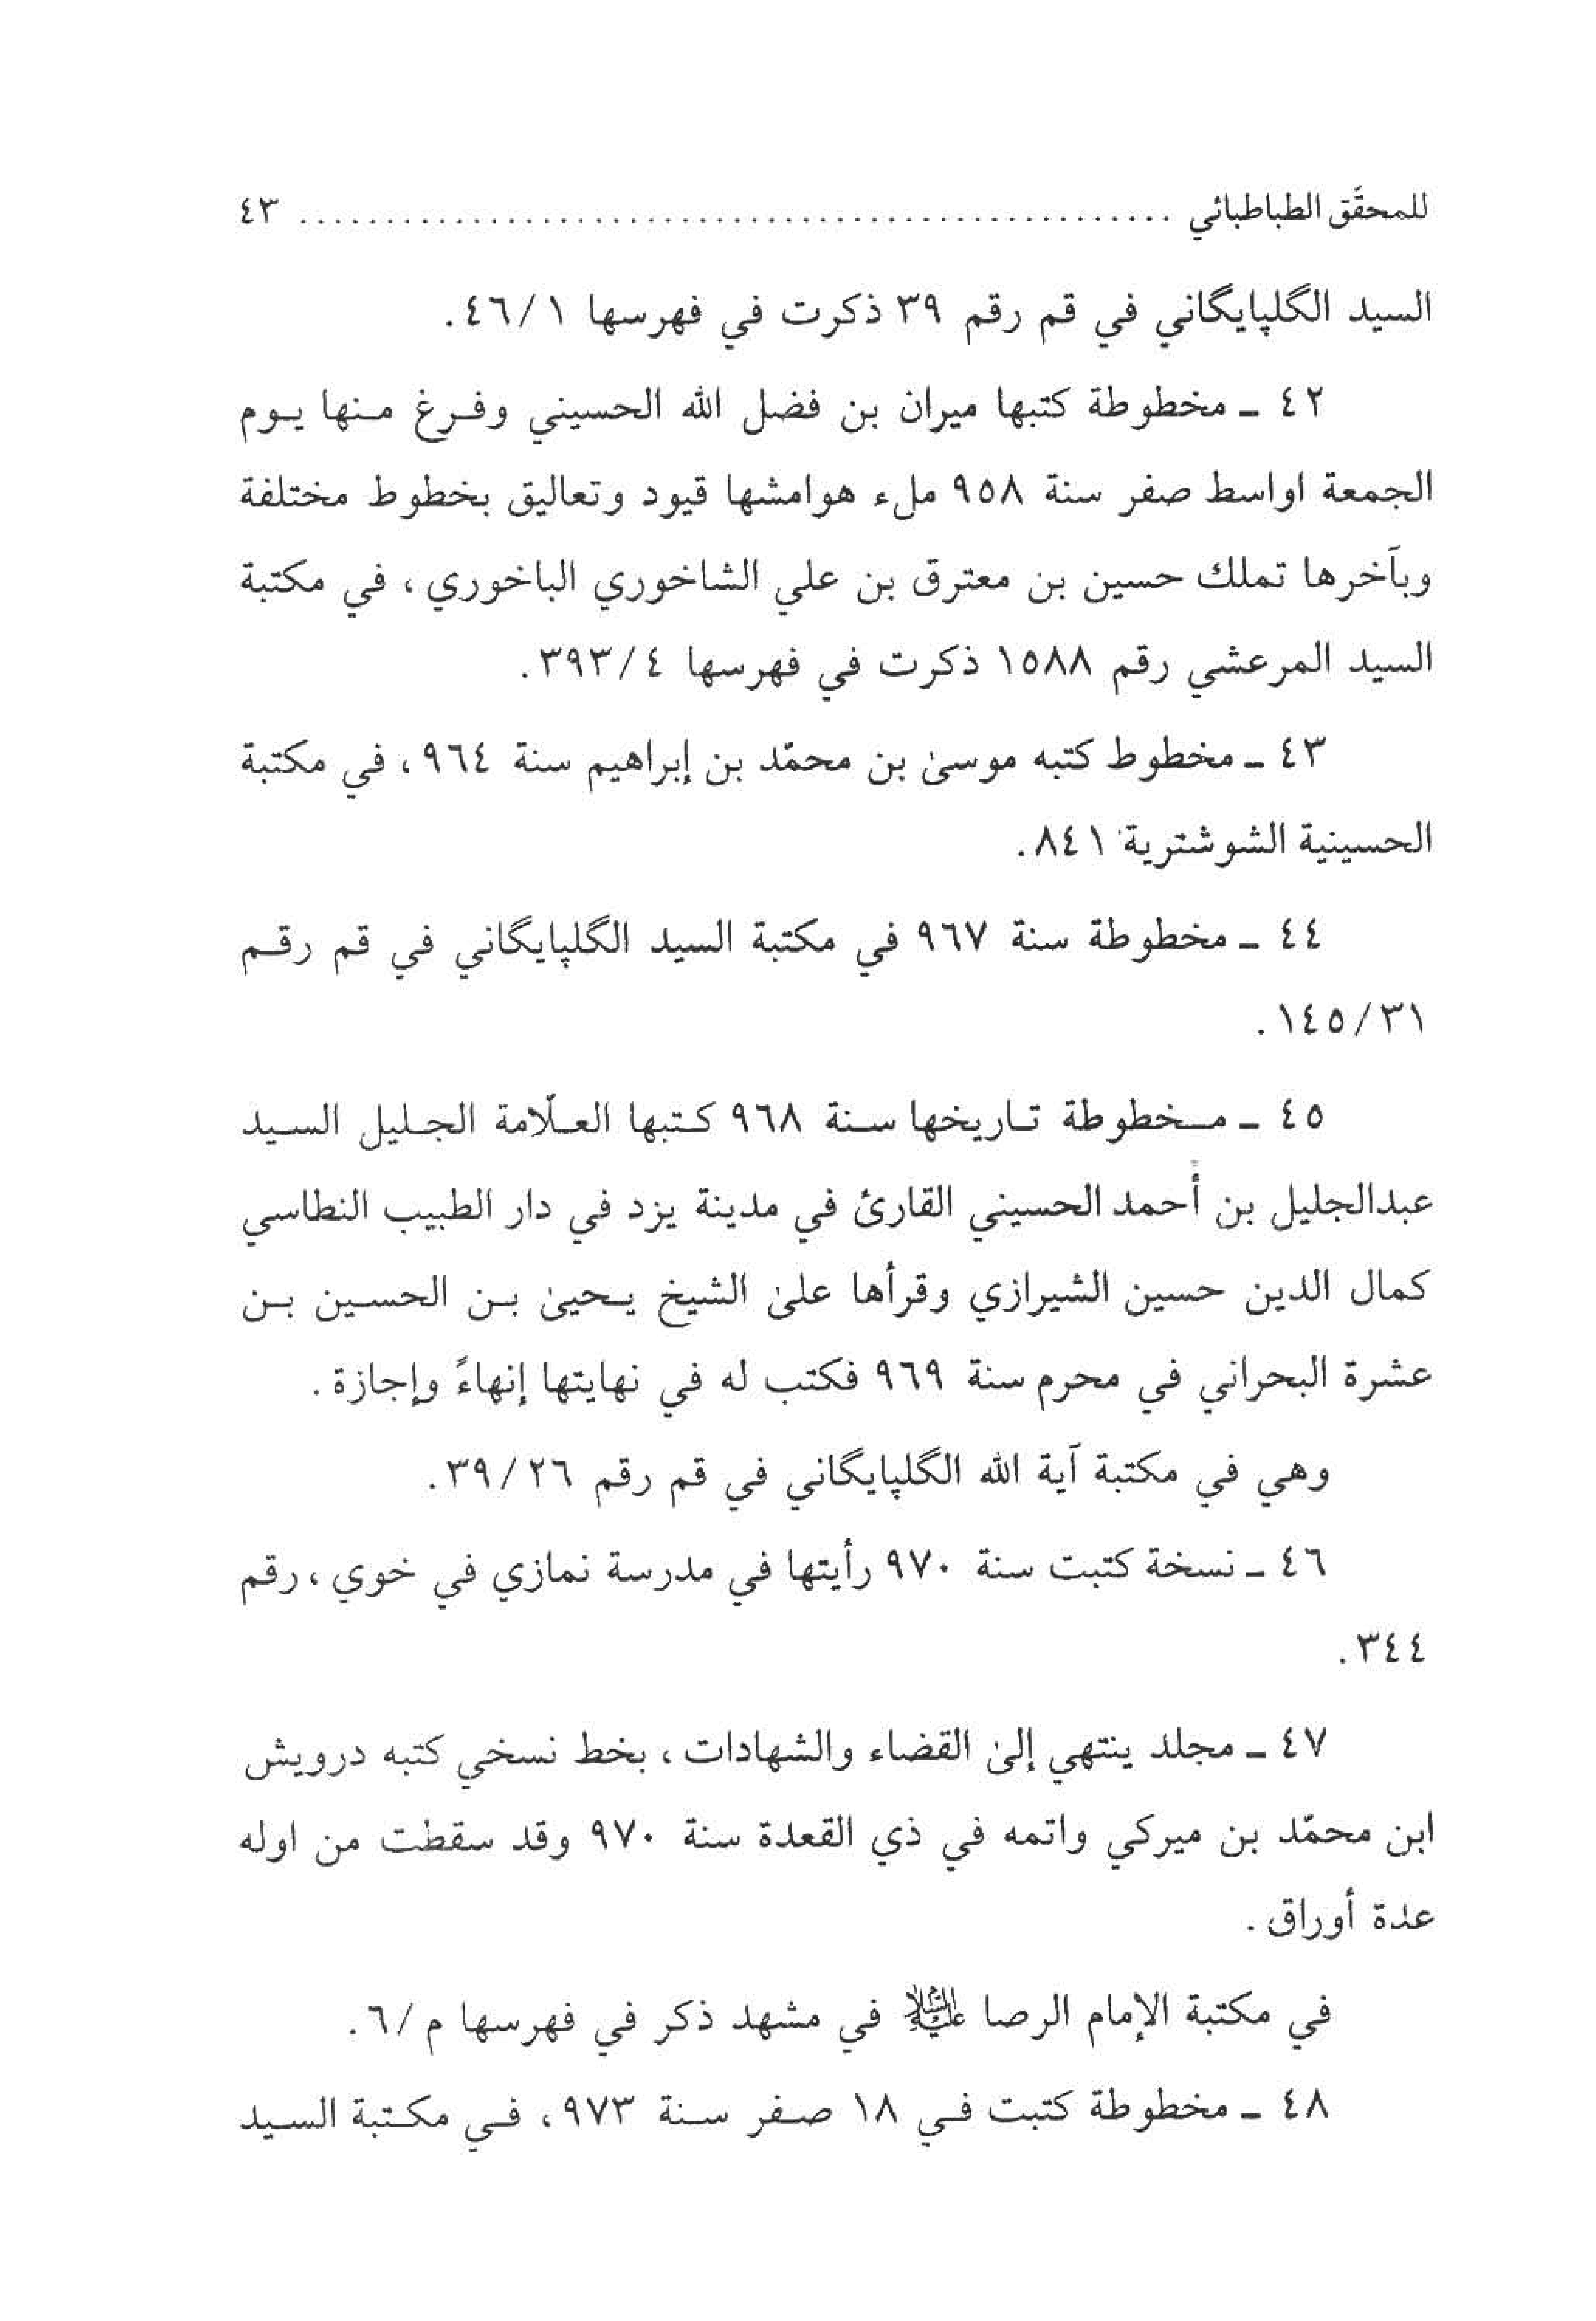 للمحقَّق الطباطبائي .................................................. ٤٣
السيد الگلپايگاني في قم رقم ٣٩ ذكرت في فهرسها ٤٦/١ .
٤٢ ـ مخطوطة كتبها ميران بن فضل الله الحسيني وفرغ منها يوم
الجمعة اواسط صفر سنة ٩٥٨ ملء هوامشها قيود وتعاليق بخطوط مختلفة
وبآخرها تملك حسين بن معترق بن علي الشاخوري الباخوري ، في مكتبة
السيد المرعشي رقم ١٥٨٨ ذكرت في فهرسها ٣٩٣/٤ .
٤٣ ـ مخطوط كتبه موسىٰ بن محمّد بن إبراهيم سنة ٩٦٤ ، في مكتبة
الحسينية الشوشترية ٨٤١ .
٤٤ ـ مخطوطة سنة ٩٦٧ في مكتبة السيد الگلپايگاني في قم رقم
١٤٥/٣١ .
٤٥ ـ مخطوطة تاريخها سنة ٩٦٨ كتبها العلّامة الجليل السيد
عبدالجليل بن أحمد الحسيني القارئ في مدينة يزد في دار الطبيب النطاسي
كمال الدين حسين الشيرازي وقرأها علىٰ الشيخ يحيىٰ بن الحسين بن
عشرة البحراني في محرم سنة ٩٦٩ فكتب له في نهايتها إنهاءً وإجازة .
وهي في مكتبة آية الله الگلپايگاني في قم رقم ٣٩/٢٦ .
٤٦ ـ نسخة كتبت سنة ٩٧٠ رأيتها في مدرسة نمازي في خوي ، رقم
٣٤٤ .
٤٧ ـ مجلد ينتهي إلىٰ القضاء والشهادات ، بخط نسخي كتبه درويش
ابن محمّد بن ميركي واتمه في ذي القعدة سنة ٩٧٠ وقد سقطت من اوله
عدة أوراق .
في مكتبة الإمام الرصا عليه السلام في مشهد ذكر في فهرسها م /٦ .
٤٨ ـ مخطوطة كتبت في ١٨ صفر سنة ٩٧٣ ، في مكتبة السيد